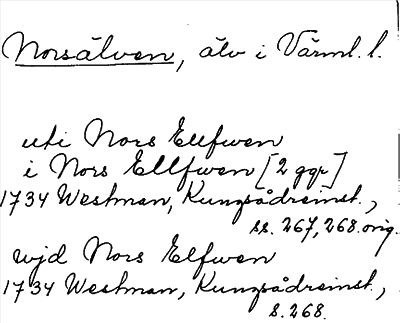 Norsälven, älv i Värml. l.
uti Nors Elefwen
i Nors Ellfwen [2 ggr]
1734 Westman, Kungsådreinst.,
ss. 267, 268. orig.
wjd Nors Elfwen
1734 Westman, Kungsådreinst.,
s. 268.